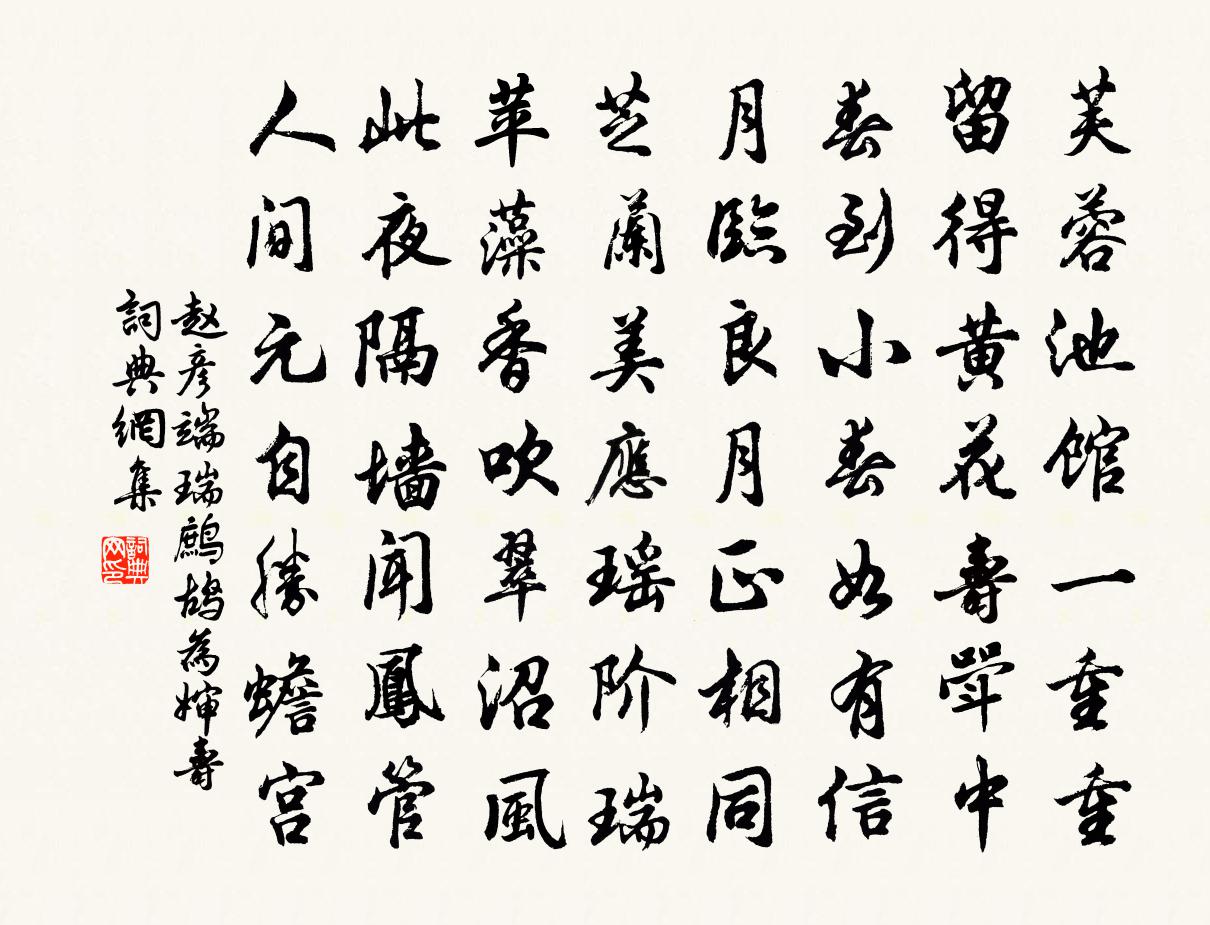 芙蓉池馆一重重
留得黄花壽斝中
春到小春如有信
月臨良月正相同
芝蘭美應瑶阶瑞
苹藻香吹翠沼風
此夜隔墙聞鳳管
人间元自勝蟾宫
赵彦端瑞鷓鴣為婶壽
詞典網集
詞典网印